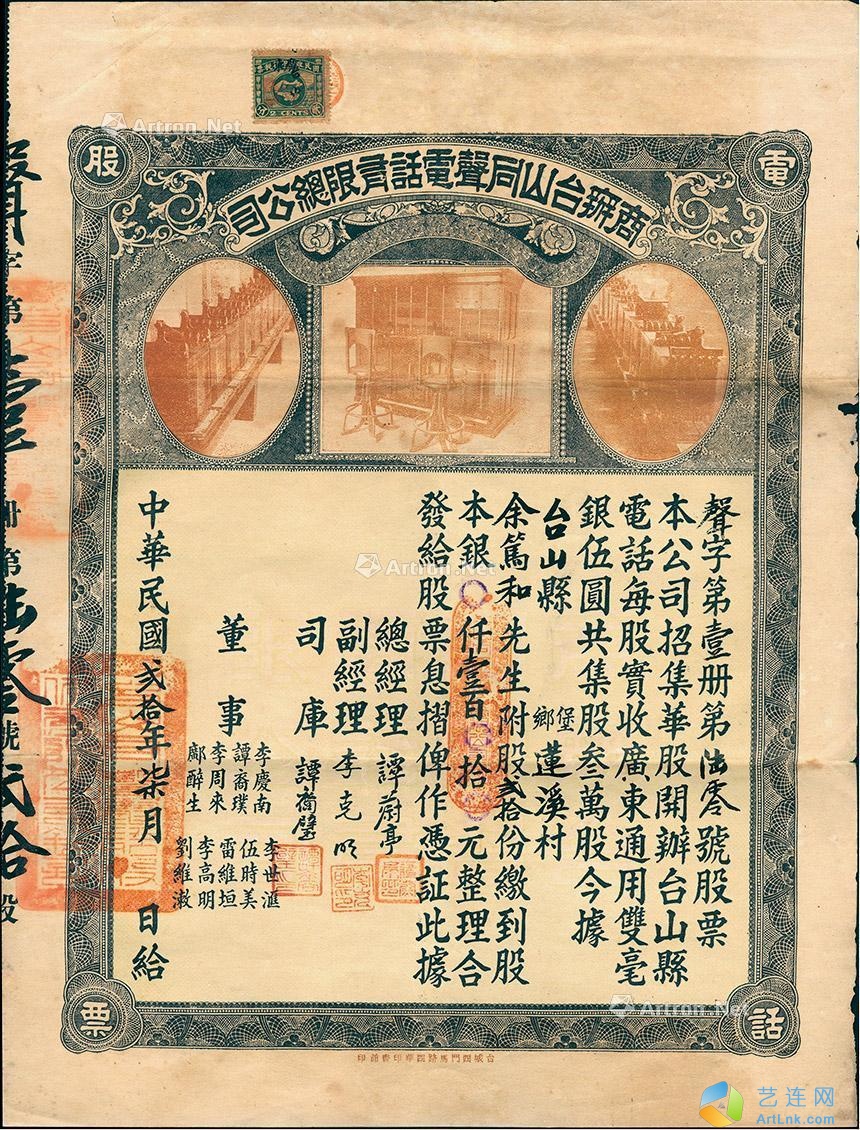 2 CENTS
電
話
股
票
商辦台山同聲電話有限總公司
聲字第壹冊第陆零號股票
本公司招集華股開辦台山縣
電話每股實收廣東通用雙毫
銀伍圓共集股叁萬股今據
台山縣 鄉 堡 蓮溪村
余篤和先生附股弍拾份繳到股
本銀〇仟壹百 拾 元整理合
發給股票息摺俾作憑証此據
總經理 譚蔚亭
副經理 李克明
司庫 譚裔璧
董事
李慶南 李世滙
譚裔璞 伍時美
李周來 雷維垣
鄺醉生 李高明
劉維漖
中華民國弍拾年柒月 日給
字第壹冊第陆零號弍拾股
台城西門馬路西華印書舘印
Artron.Net
Artron.Net
Artron.Net
艺连网
ArtLnk.com